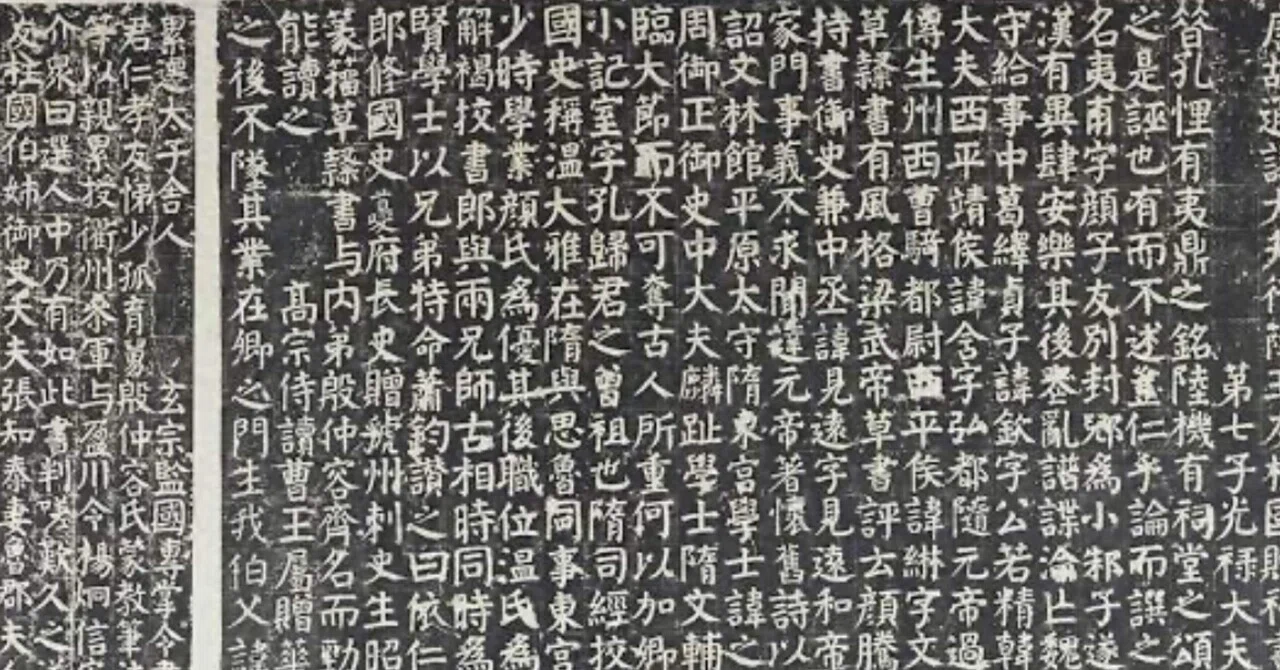 第七子光祿大夫
昔孔悝有夷鼎之銘陸機有祠堂之頌
之是誣也有而不述豈仁乎論而譔之
名夷甫字顏子友別封郳爲小邾子遂
漢有異肆安樂其後喪亂譜諜淪亡魏
守給事中葛繹貞子諱欽字公若精韓
大夫西平靖侯諱含字弘都隨元帝過
傳生州西曹騎都尉西平侯諱綝字文
草隸書有風格梁武帝草書評云顏騰
持書御史兼中丞諱見遠字見遠和帝
家門事義不求聞達元帝著懷舊詩以
詔文林館平原太守隋東宮學士諱之
周御正御史中大夫麟趾學士隋文輔
臨大節而不可奪古人所重何以加卿
小記室字孔歸君之曾祖也隋司經校
國史稱溫大雅在隋與思魯同事東宮
少時學業顏氏爲優其後職位溫氏爲
解褐校書郎與兩兄師古相時同時爲
賢學士以兄弟特命蕭鈞讚之曰依仁
郎修國史夔府長史贈虢州刺史生昭
篆籀草隸書与內弟殷仲容齊名而勁
能讀之 高宗侍讀曹王屬贈華
之後不墜其業在卿之門生我伯父諱
累遷太子舍人 玄宗監國專掌令
君仁孝友悌少孤育舅殷仲容氏蒙教筆
等以親累授衢州參軍与盈川令楊炯信
介衆曰選人中乃有如此書判嗟歎久之
友柱國伯姊御史大夫張知泰妻魯郡夫